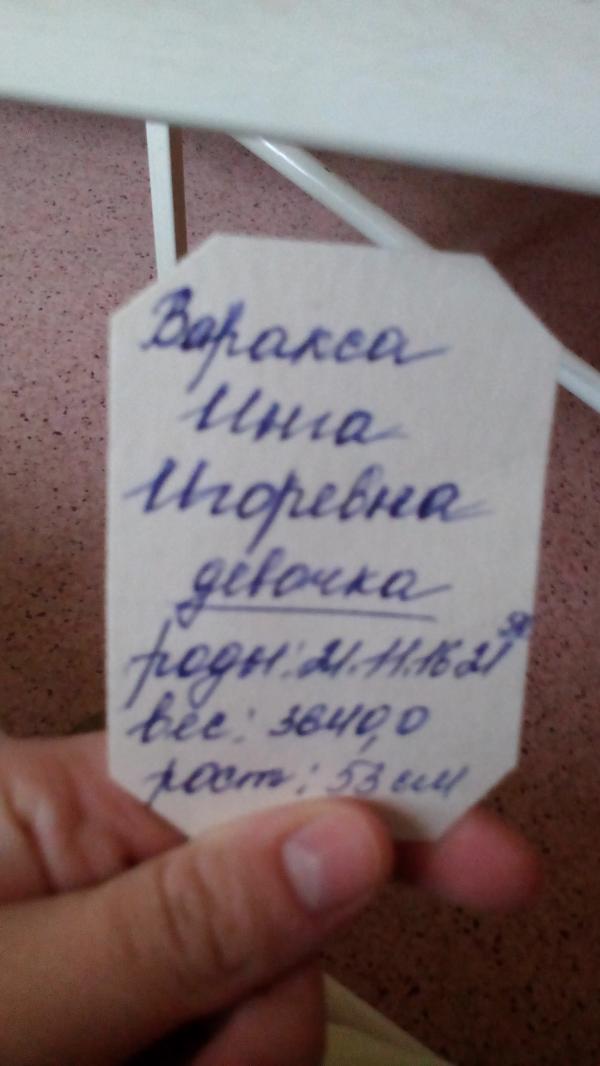 Варакса
Инга
Игоревна
девочка
роды: 21.11.16 21
вес: 3640,0
рост: 53 см